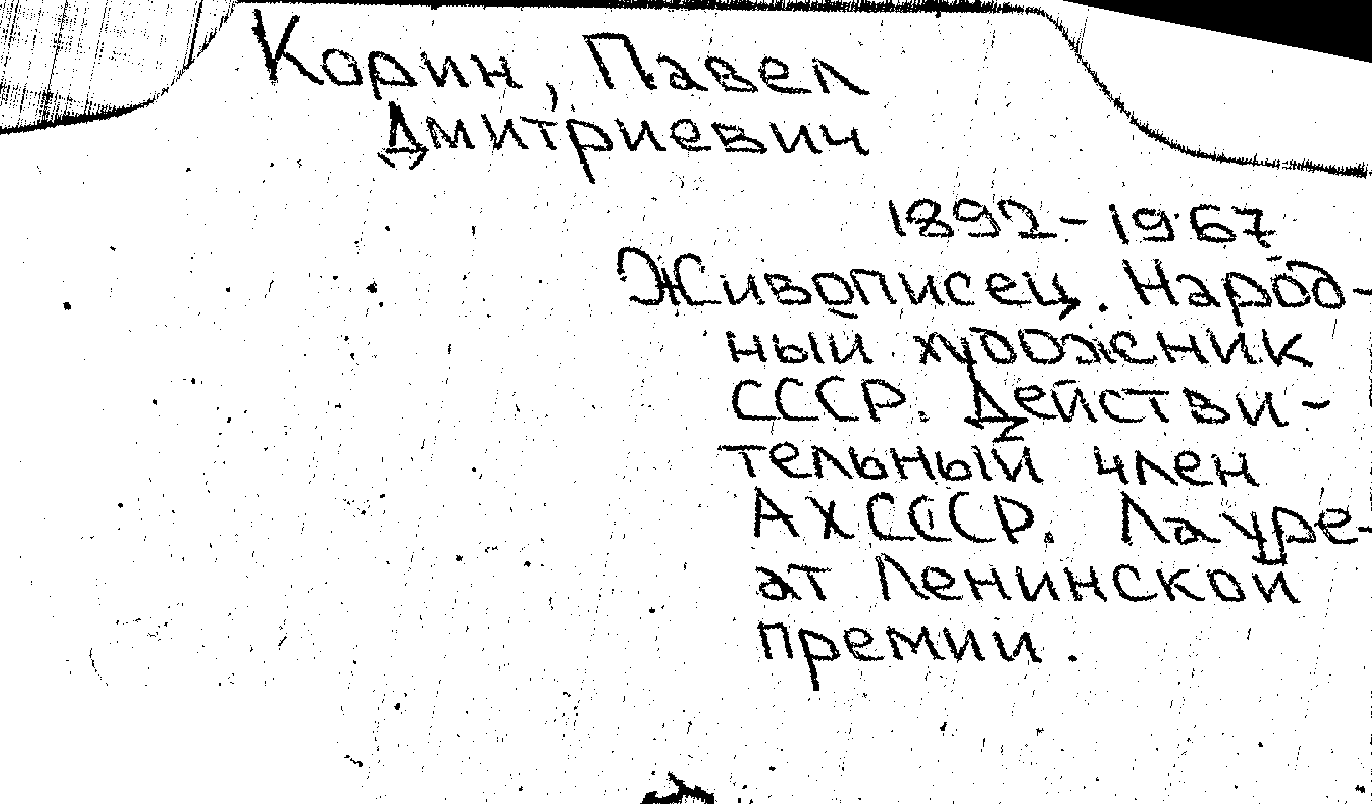 Корин, Павел
Дмитриевич
1892-1967
Живописец. Народ-
ный художник
СССР. Действи-
тельный член
АХСССР. Лауре-
ат Ленинской
премии.